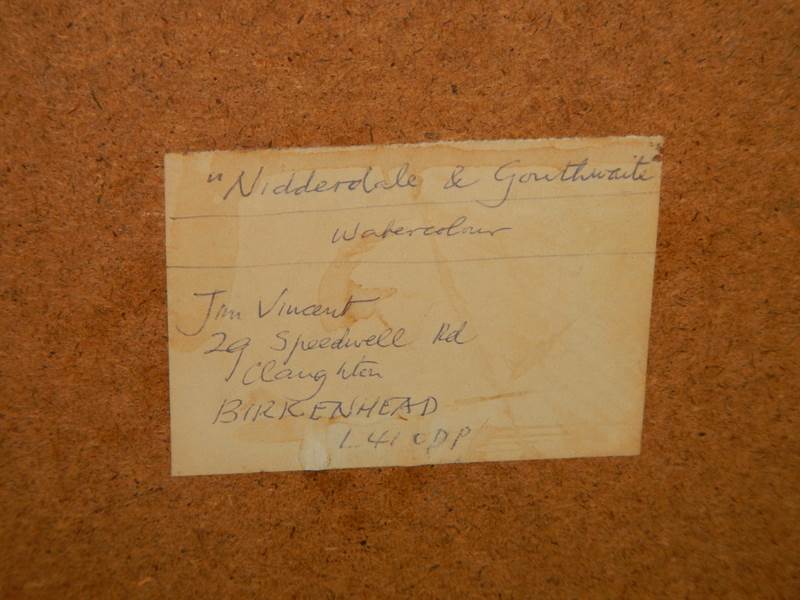 "Nidderdale & Gouthwaite
Watercolour
Jim Vincent
29 Speedwell Rd
Claughton
BIRKENHEAD
L41 0DP